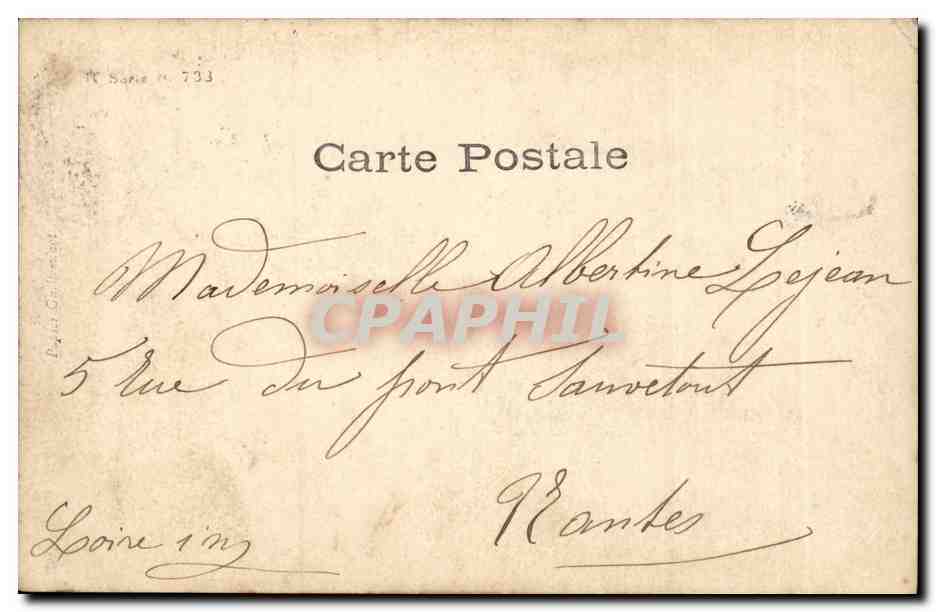 Serie n. 733
Carte Postale
Mademoiselle Albertine Lejean
CPAPHIL
5 rue du pont Sauvetout
Nantes
Loire inf